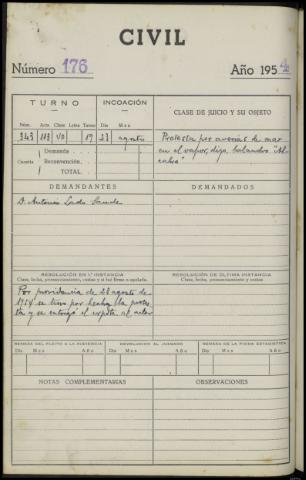 CIVIL
Número 176 Año 1954
TURNO INCOACIÓN CLASE DE JUICIO Y SU OBJETO
Núm. Acta Clase Letra Tomo Día Mes
343 113 17 23 agosto Protesta por averías de mar
en el vapor, digo, balandro "Al-
Cuantía Demanda
Reconvención.
TOTAL
DEMANDANTES DEMANDADOS
D. Antonio
RESOLUCIÓN EN 1.ª INSTANCIA RESOLUCIÓN DE ÚLTIMA INSTANCIA
Clase, fecha, pronunciamiento, costas y si fué firme o apelada. Clase, fecha, pronunciamiento y costas
Por providencia de 28 agosto de
1954 se tuvo por hecha la protes-
ta y se entregó el expete al actor
REMESA DEL PLEITO A LA SUPERIOR DEVOLUCIÓN AL JUZGADO REMESA DE LA FICHA ESTADÍSTICA
Día Mes Año Día Mes Año Día Mes Año
NOTAS COMPLEMENTARIAS OBSERVACIONES